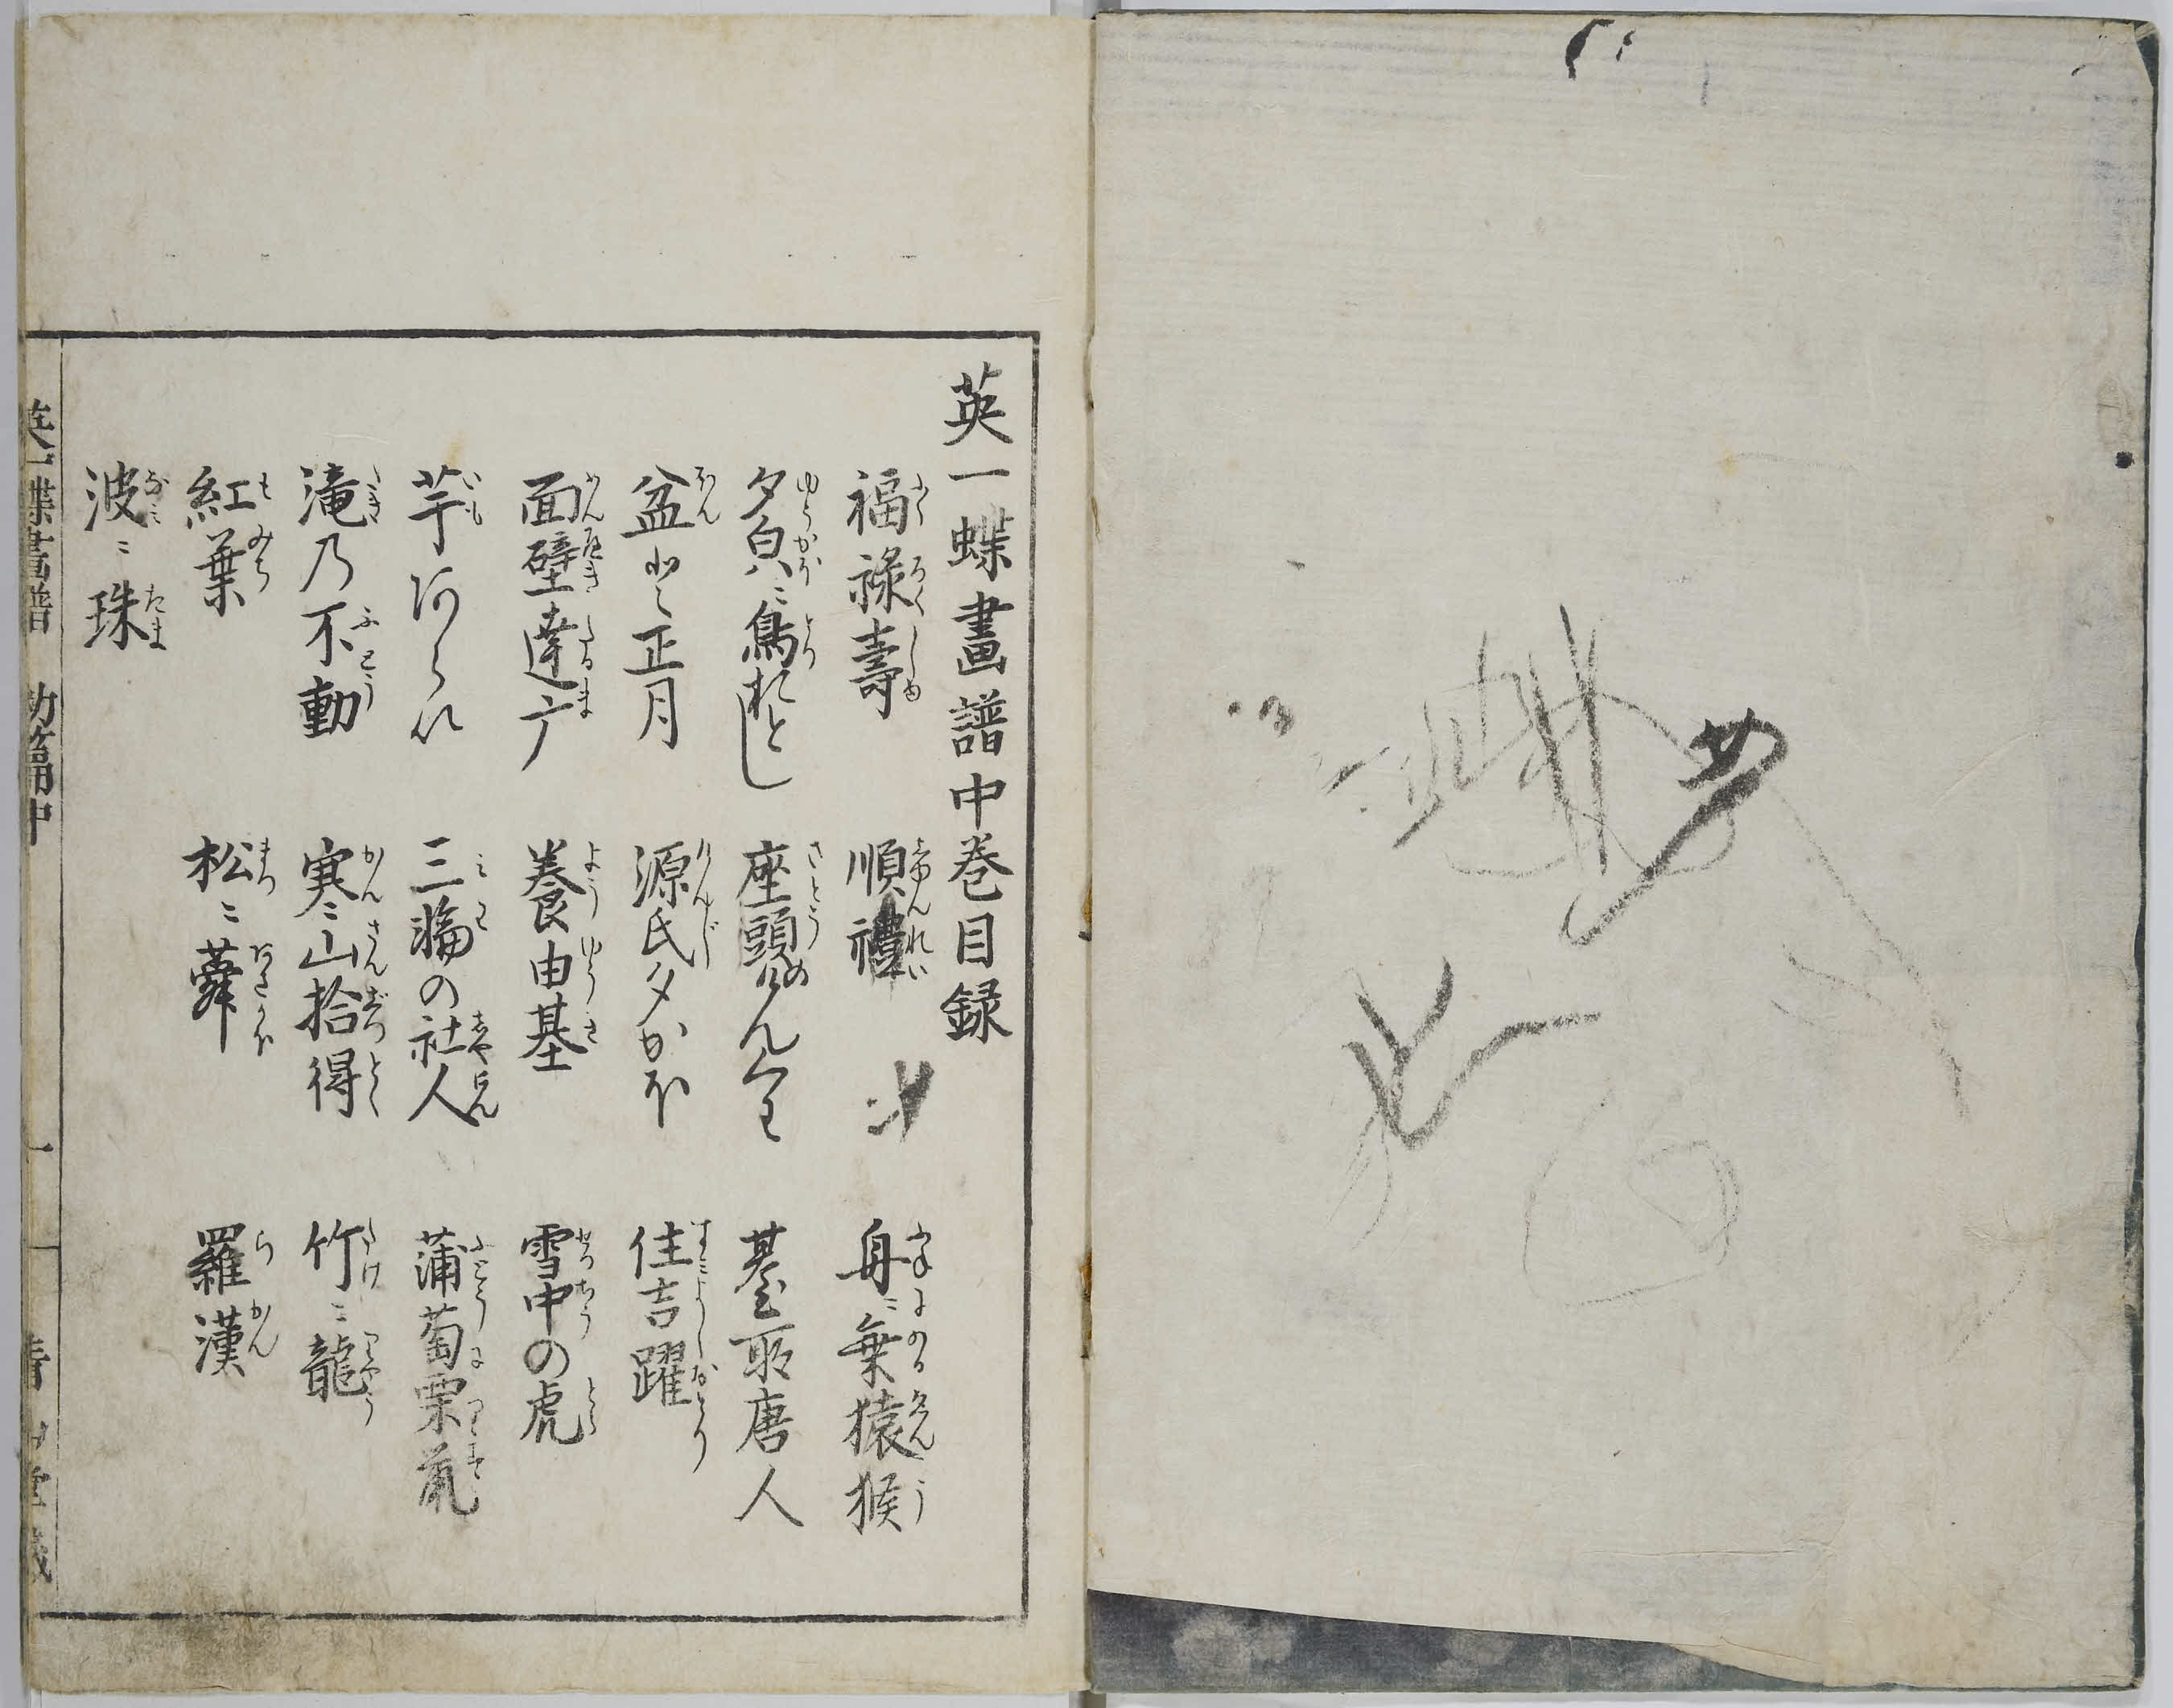 英一蝶畫譜中巻目録
福禄壽 順禮 舟ニ乗猿猴
夕皃ニ鳥おどし 座頭のけんくわ 碁取唐人
盆と正月 源氏夕かほ 住吉躍
面壁達广 養由基 雪中の虎
芋あらい 三輪の社人 蒲萄栗鼠
滝乃不動 寒山拾得 竹ニ龍
紅葉 松ニ蕣 羅漢
波ニ珠
英一蝶畫譜 初篇中 一